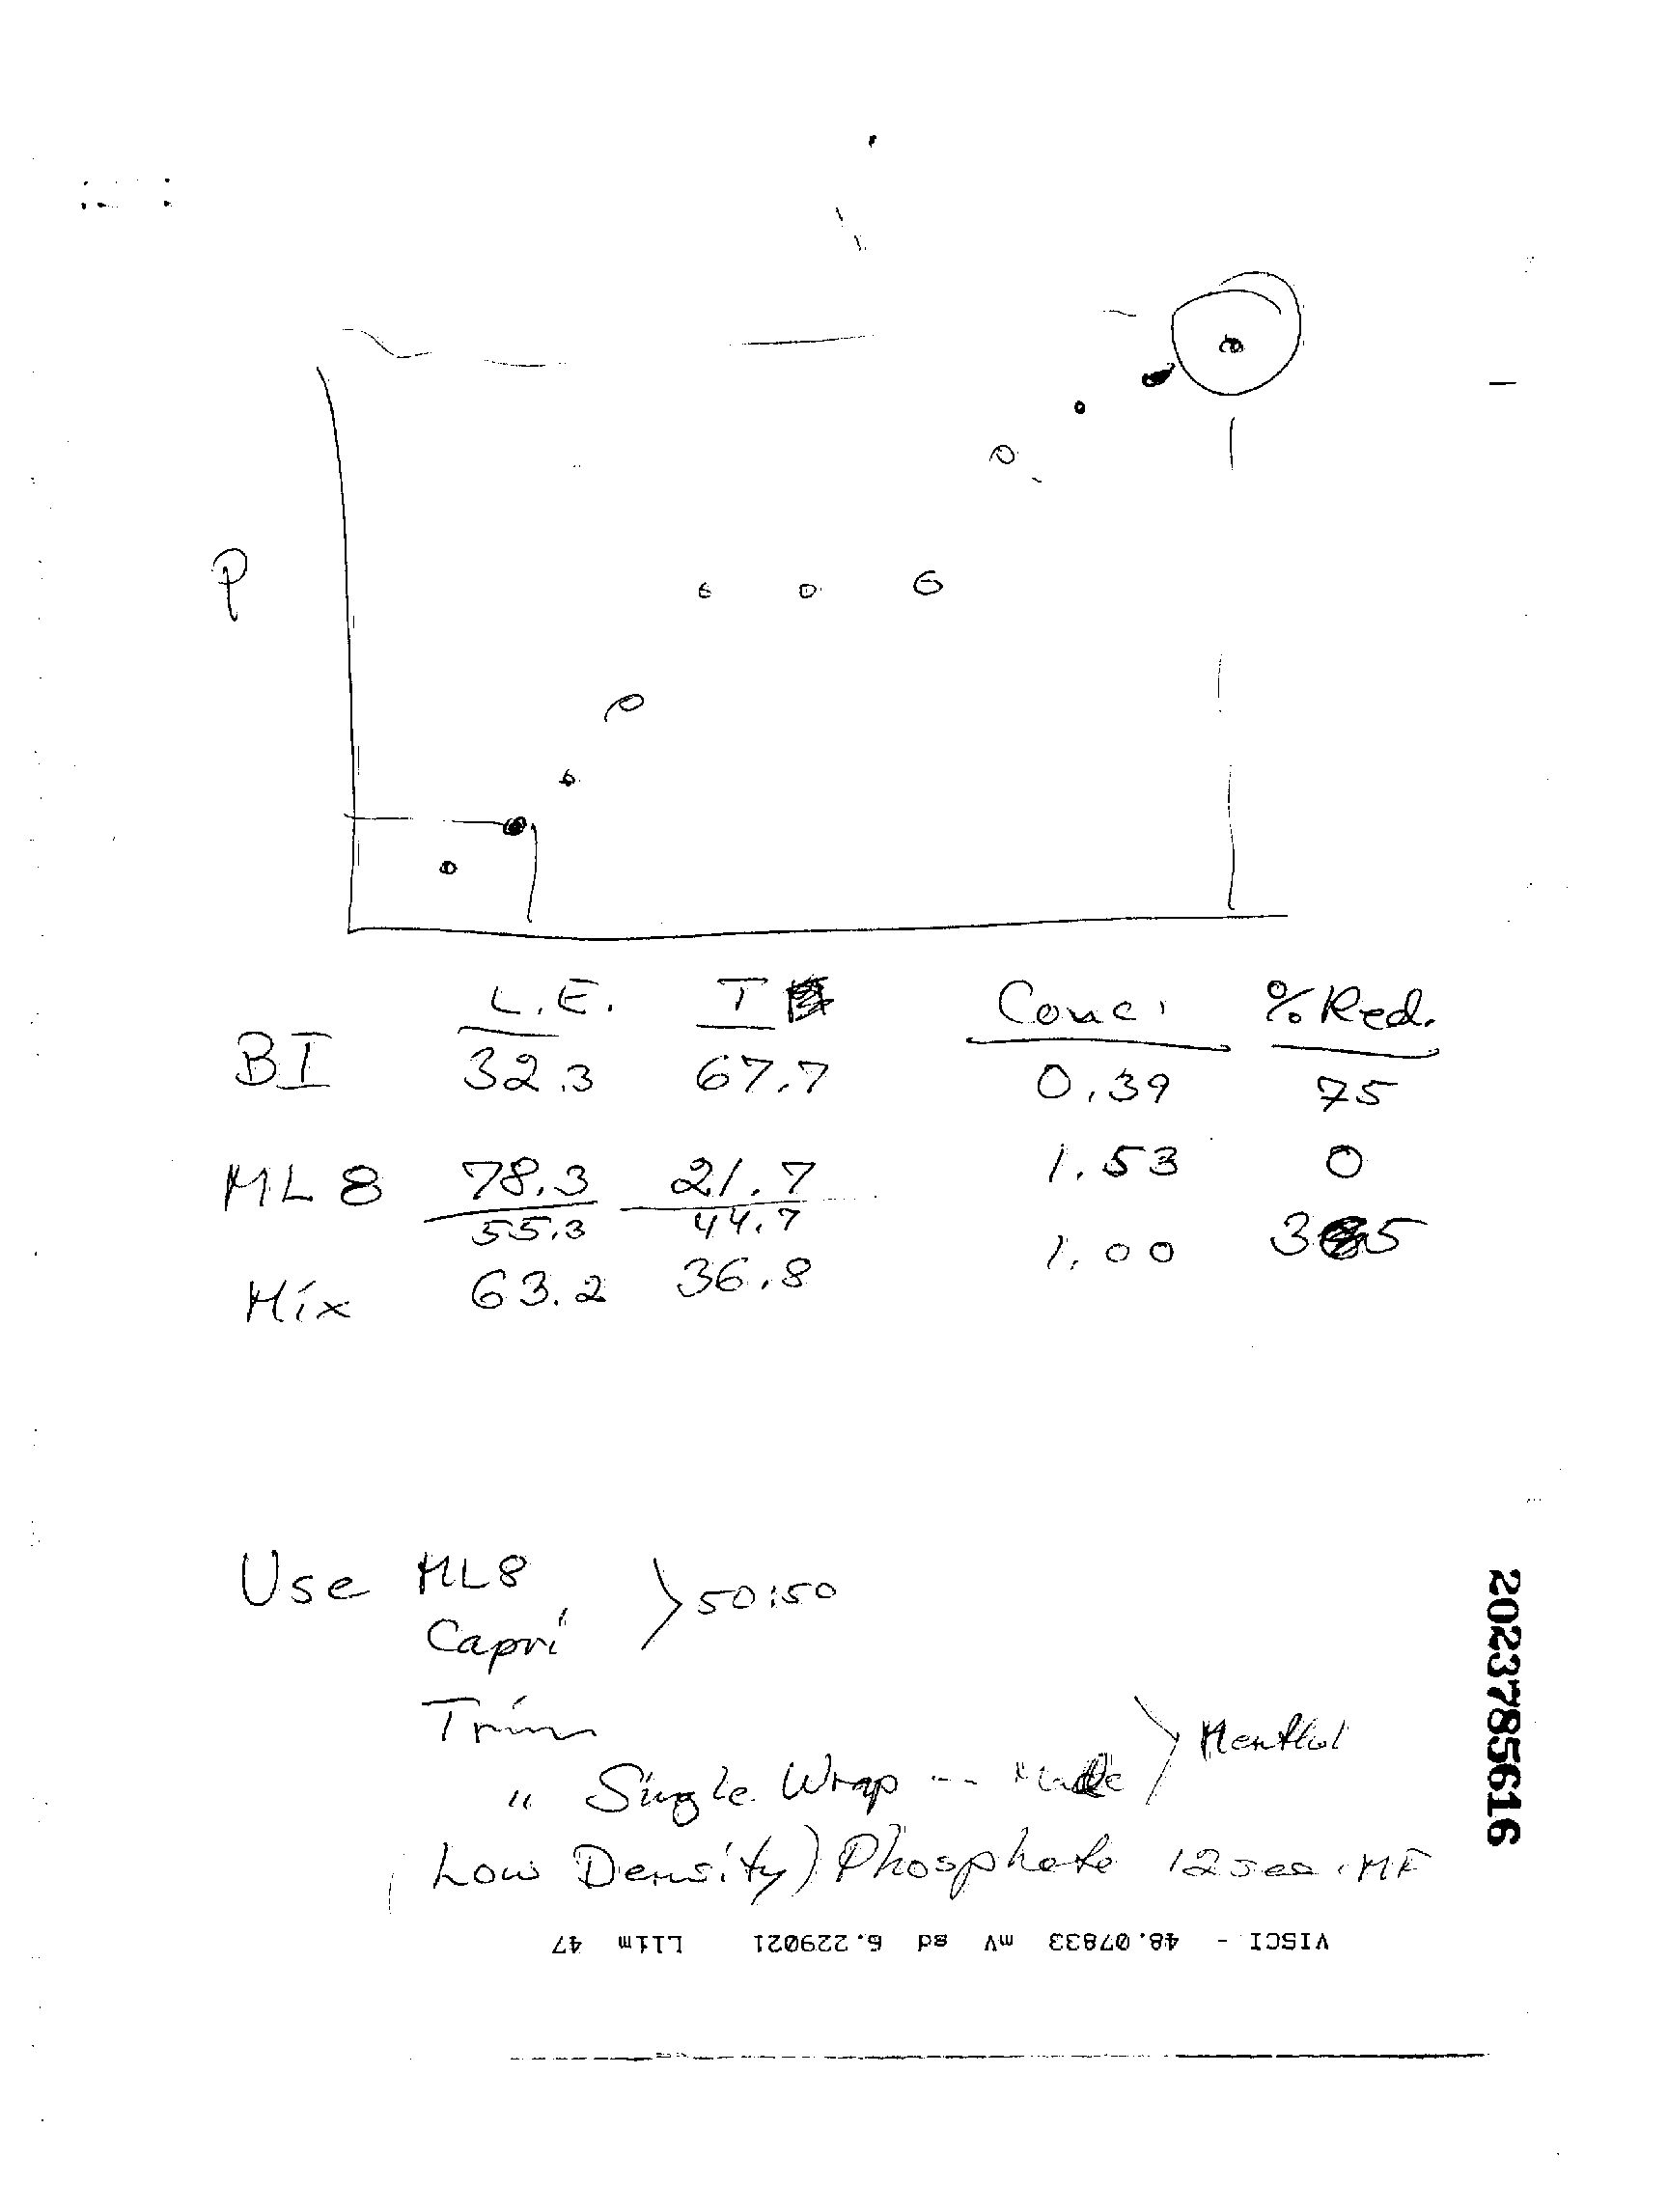 P
L.E. T
Conc. % Red.
BI 32.3 67.7 0.39 75
ML 8 78.3 21.7 1.53 0
55.3 44.7
Mix 63.2 36.8 1.00 35
Use ML8
Capri
>50:50
Trim
" Single Wrap -- Made > Menthol
Low Density) Phosphate 12 sec. MF
VISCI - 48.07833 mV sd 6.229021 Llim 47
2023785616